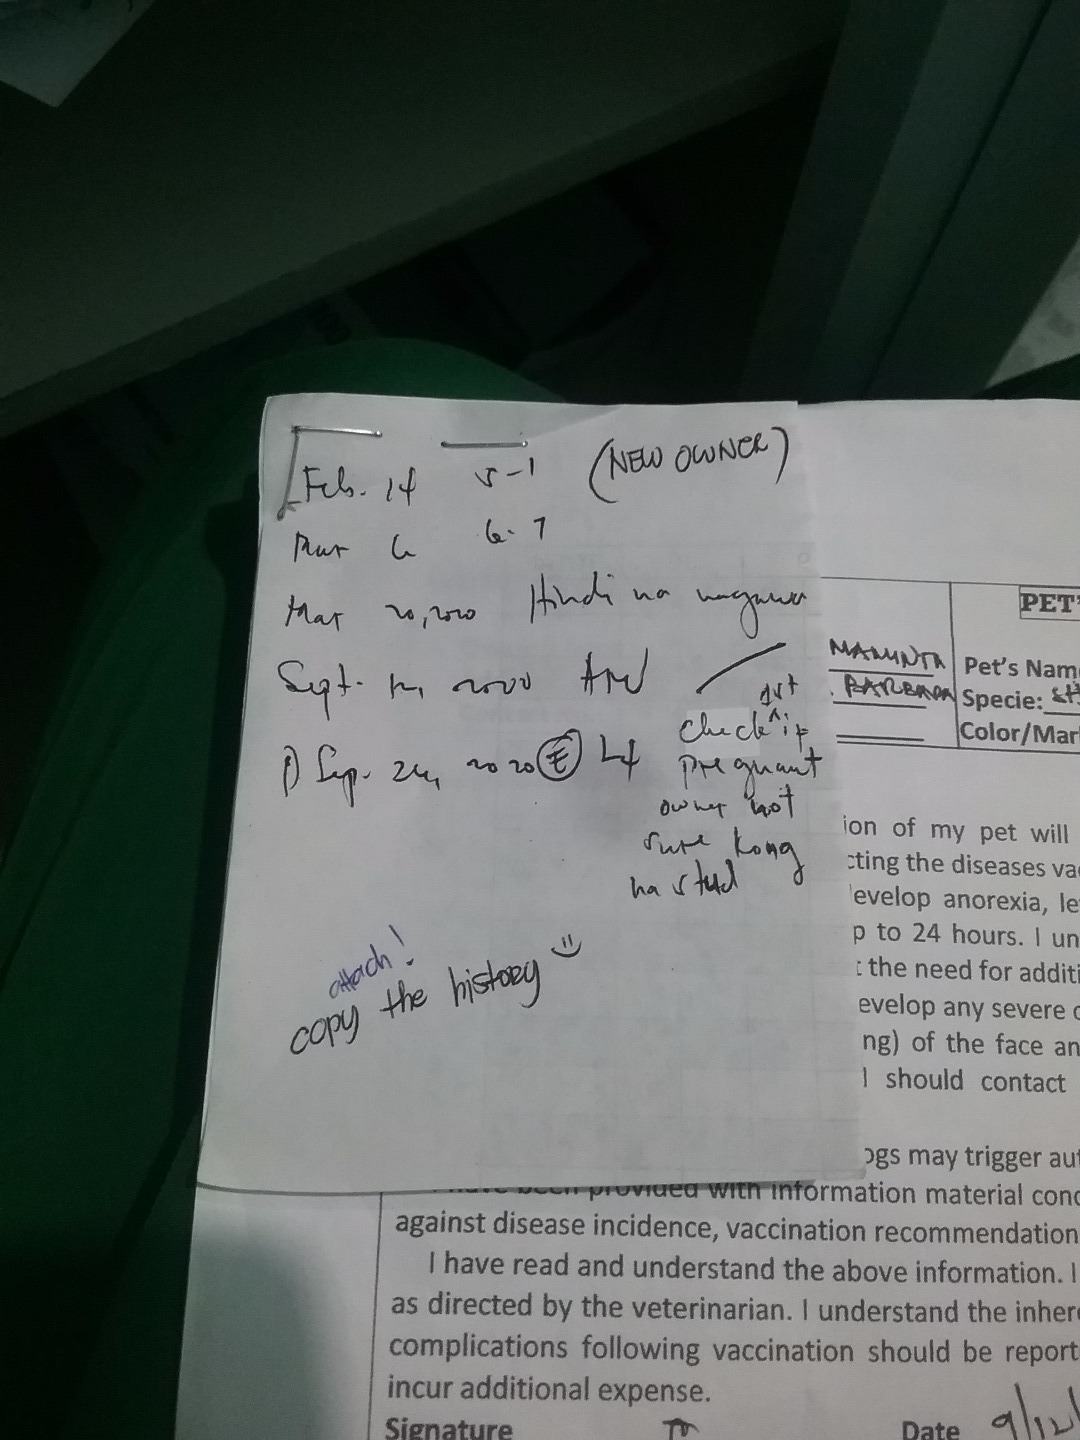 Feb. 14 5-1 (NEW OWNER)
Mar 6 6-7
Mar 20, 2020 Hindi na nagawa
Sept. 12, 2020
Sep. 24, 2020 L4
check 1st if
pregnant
owner not
sure kong
na stud
attach!
copy the history
PET'
Pet's Nam
BARBARA Specie:
Color/Mar
ion of my pet will
cting the diseases va
evelop anorexia, le
p to 24 hours. I un
t the need for additi
evelop any severe
ng) of the face an
I should contact
ogs may trigger aut
have been provided with information material conc
against disease incidence, vaccination recommendation
I have read and understand the above information. I
as directed by the veterinarian. I understand the inhere
complications following vaccination should be report
incur additional expense.
Signature Date 9/12/